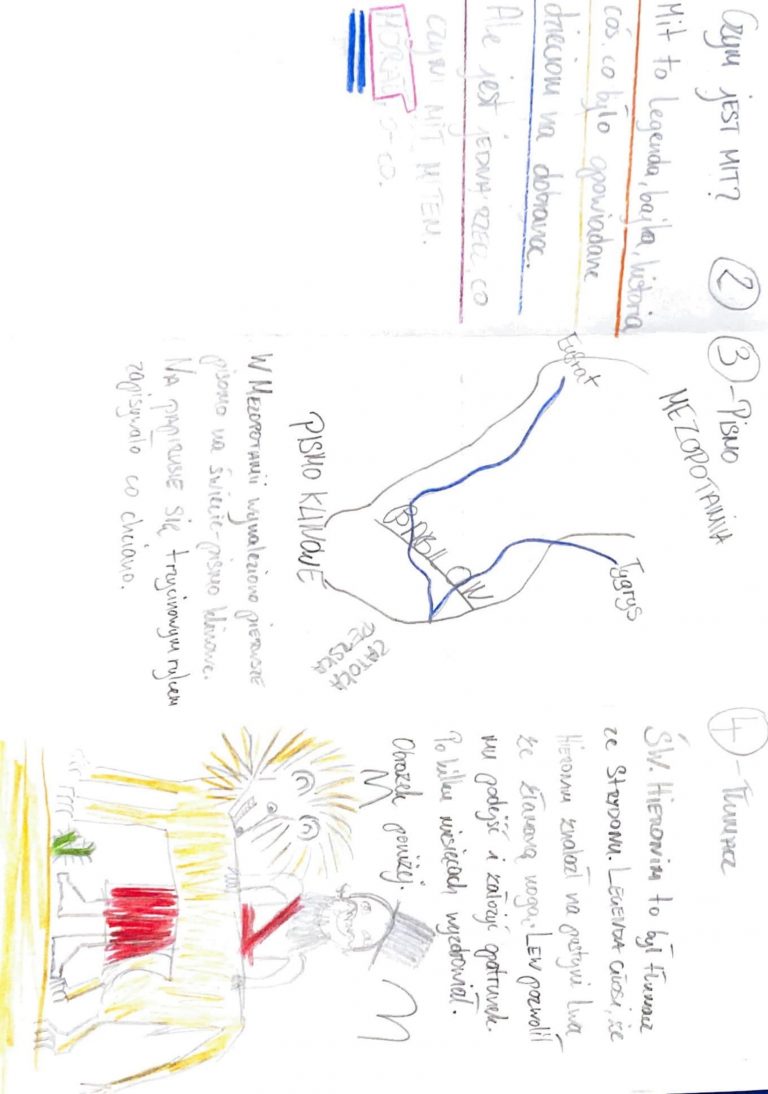 Czym JEST MIT? 2
Mit to legenda, bajka, historia
coś, co było opowiadane
dzieciom na dobranoc.
Ale jest JEDNA RZECZ, CO
CZYNI MIT MITEM.
MORAŁ, O-CO.
3 - PISMO
MEZOPOTAMIA
Eufrat
Tygrys
BABILON
ZATOKA
PERSKA
PISMO KLINOWE
W MEZOPOTAMII wynaleziono pierwsze
pismo na świecie-pismo klinowe.
NA PAPIRUSIE SIĘ trzcinowym rylcem
zapisywało co chciano.
4 - TŁUMACZ
ŚW. HIERONIM to był tłumacz
ze STRYDONU. LEGENDA GŁOSI, że
HIERONIM znalazł na pustyni lwa
ze złamaną nogą. LEW pozwolił
mu podejść i założyć opatrunek.
Po kilku miesiącach wyzdrowiał.
Obrazek poniżej.